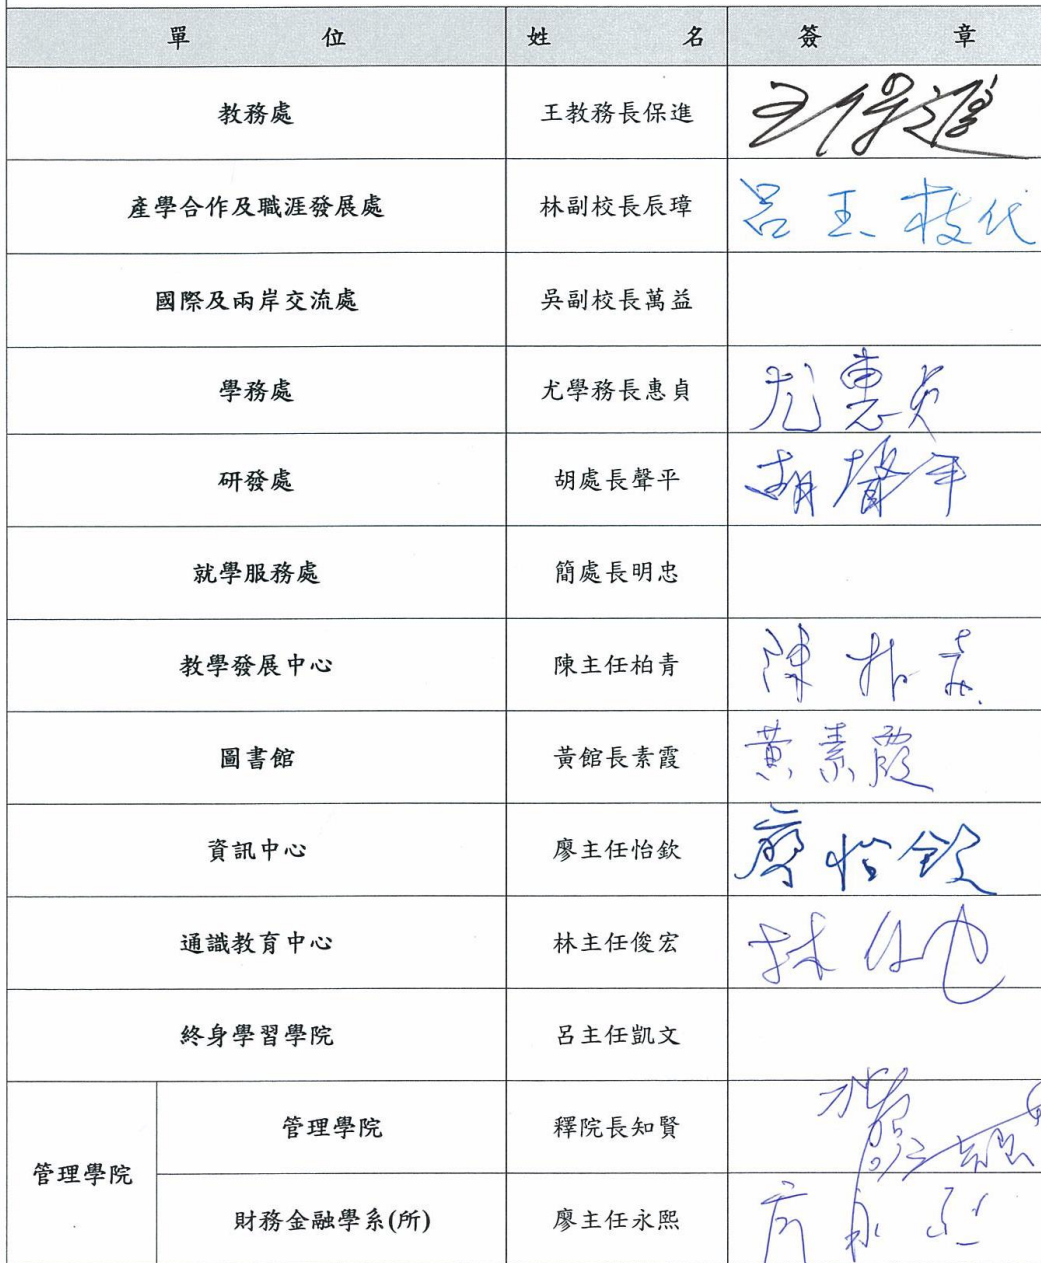 單 位 姓 名 簽 章
教務處 王教務長保進 王保進
產學合作及職涯發展處 林副校長辰璋 呂玉枝代
國際及兩岸交流處 吳副校長萬益
學務處 尤學務長惠貞 尤惠貞
研發處 胡處長聲平 胡聲平
就學服務處 簡處長明忠
教學發展中心 陳主任柏青 陳柏青
圖書館 黃館長素霞 黃素霞
資訊中心 廖主任怡欽 廖怡欽
通識教育中心 林主任俊宏 林俊宏
終身學習學院 呂主任凱文
管理學院 管理學院 釋院長知賢
財務金融學系(所) 廖主任永熙 廖永熙